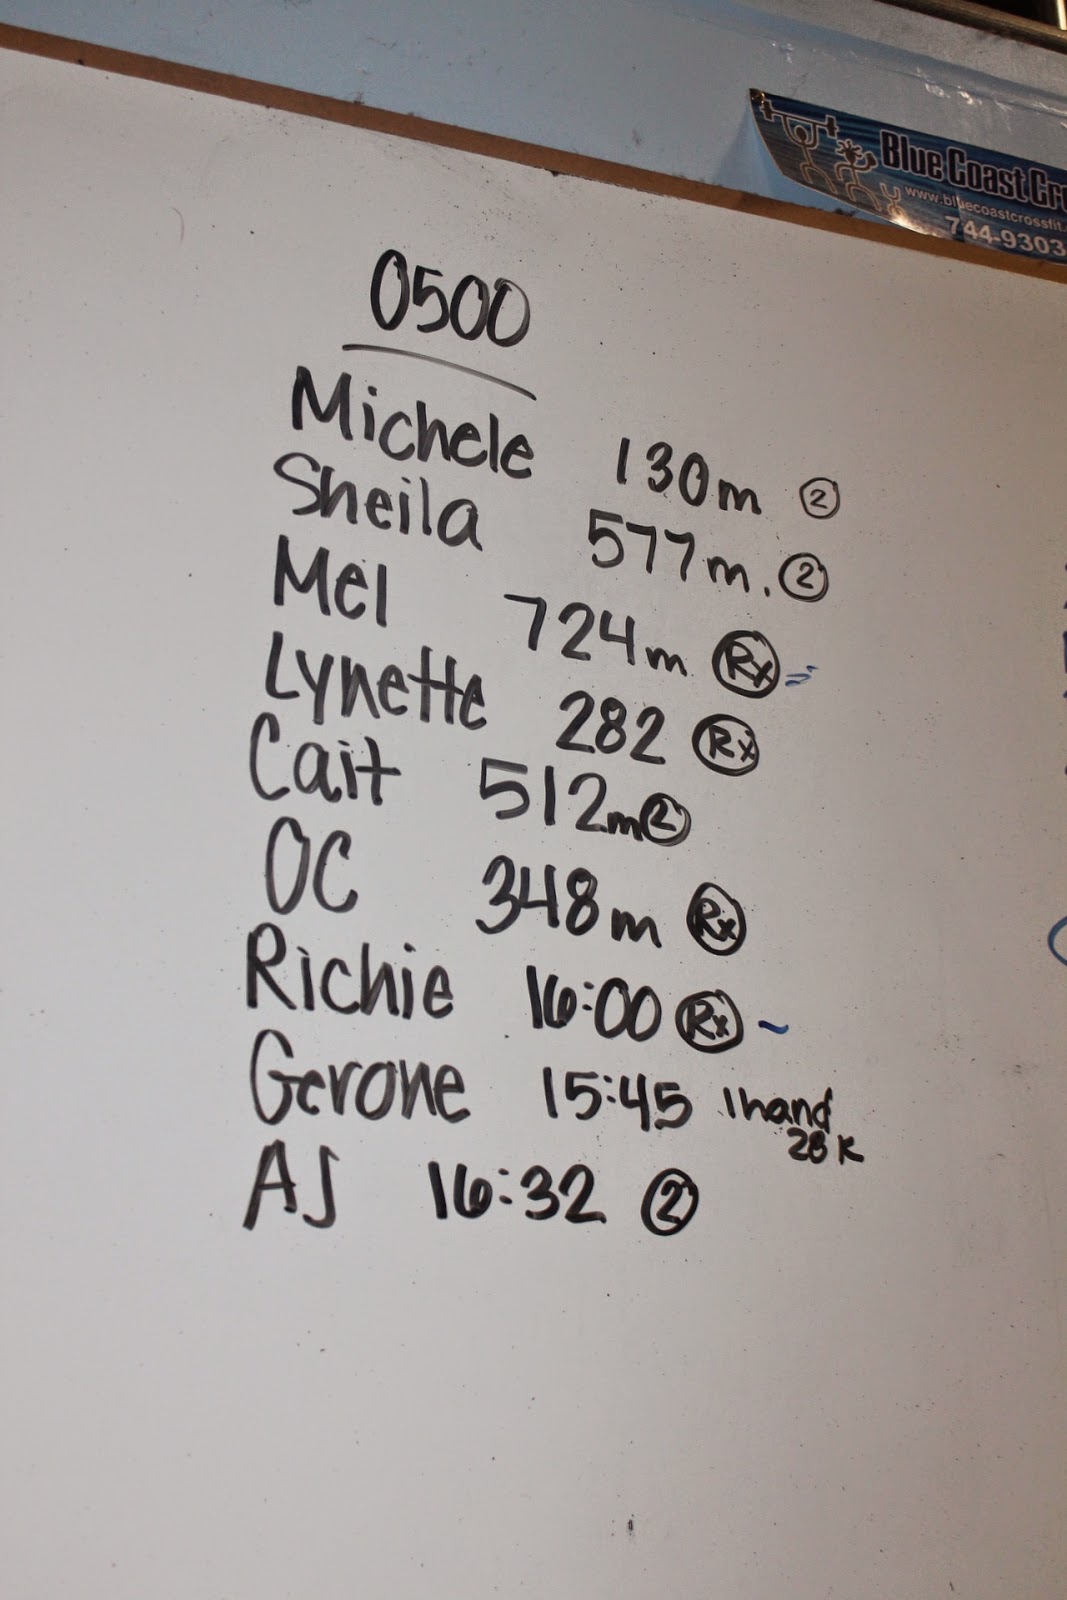 Blue Coast Cr
www.bluecoastcrossfit.
744-9303
0500
Michele 130m 2
Sheila 577m. 2
Mel 724m Rx
Lynette 282 Rx
Cait 512m 2
OC 348m Rx
Richie 16:00 Rx
Gerone 15:45 1 hand
28 K
AJ 16:32 2